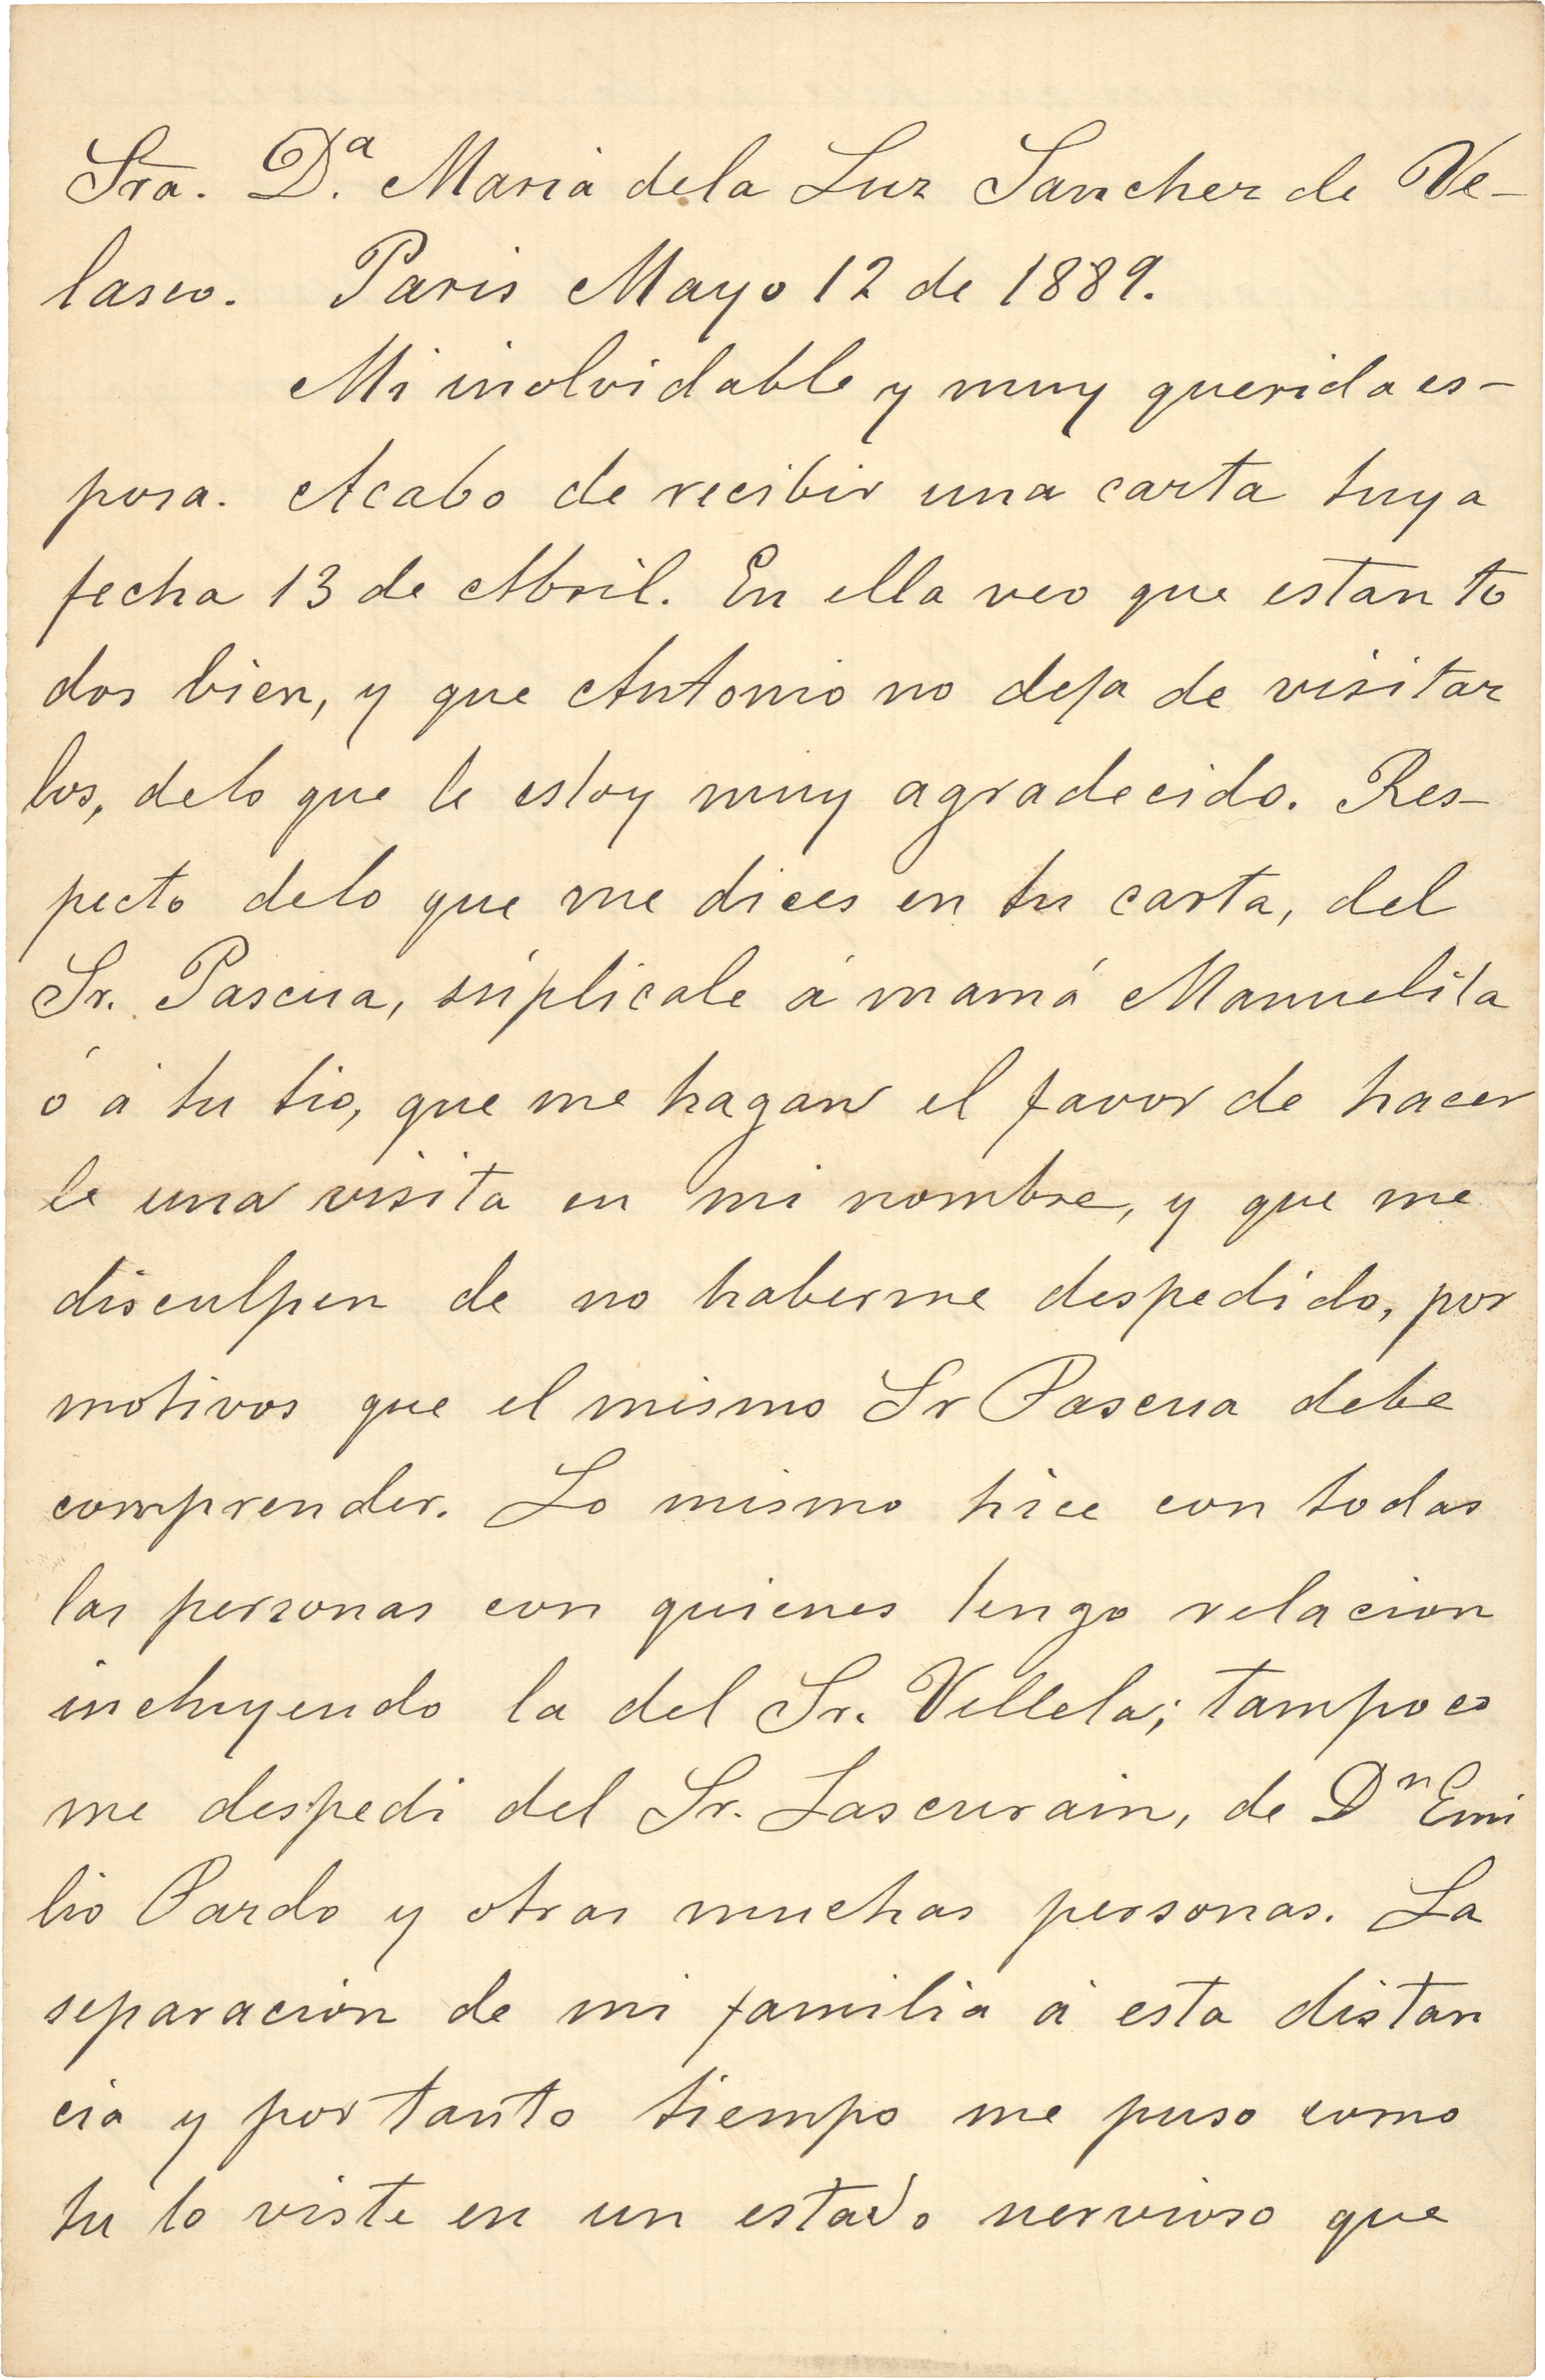 Sra. D.ª Maria dela Luz Sanchez de Ve-
lasco. Paris Mayo 12 de 1889.
Mi inolvidable y muy querida es-
posa. Acabo de recibir una carta tuya
fecha 13 de Abril. En ella veo que estan to
dos bien, y que Antonio no deja de visitar
los, delo que le estoy muy agradecido. Res-
pecto delo que me dices en tu carta, del
Sr. Pascua, súplicale á mamá Manuelita
ó á tu tio, que me hagan el favor de hacer
le una visita en mi nombre, y que me
disculpen de no haberme despedido, por
motivos que el mismo Sr Pascua debe
comprender. Lo mismo hice con todas
las personas con quienes tengo relacion
incluyendo la del Sr. Villela; tampoco
me despedi del Sr. Lascurain, de Dⁿ Emi
lio Pardo y otras muchas personas. La
separación de mi familia á esta distan
cia y por tanto tiempo me puso como
tu lo viste en un estado nervioso que